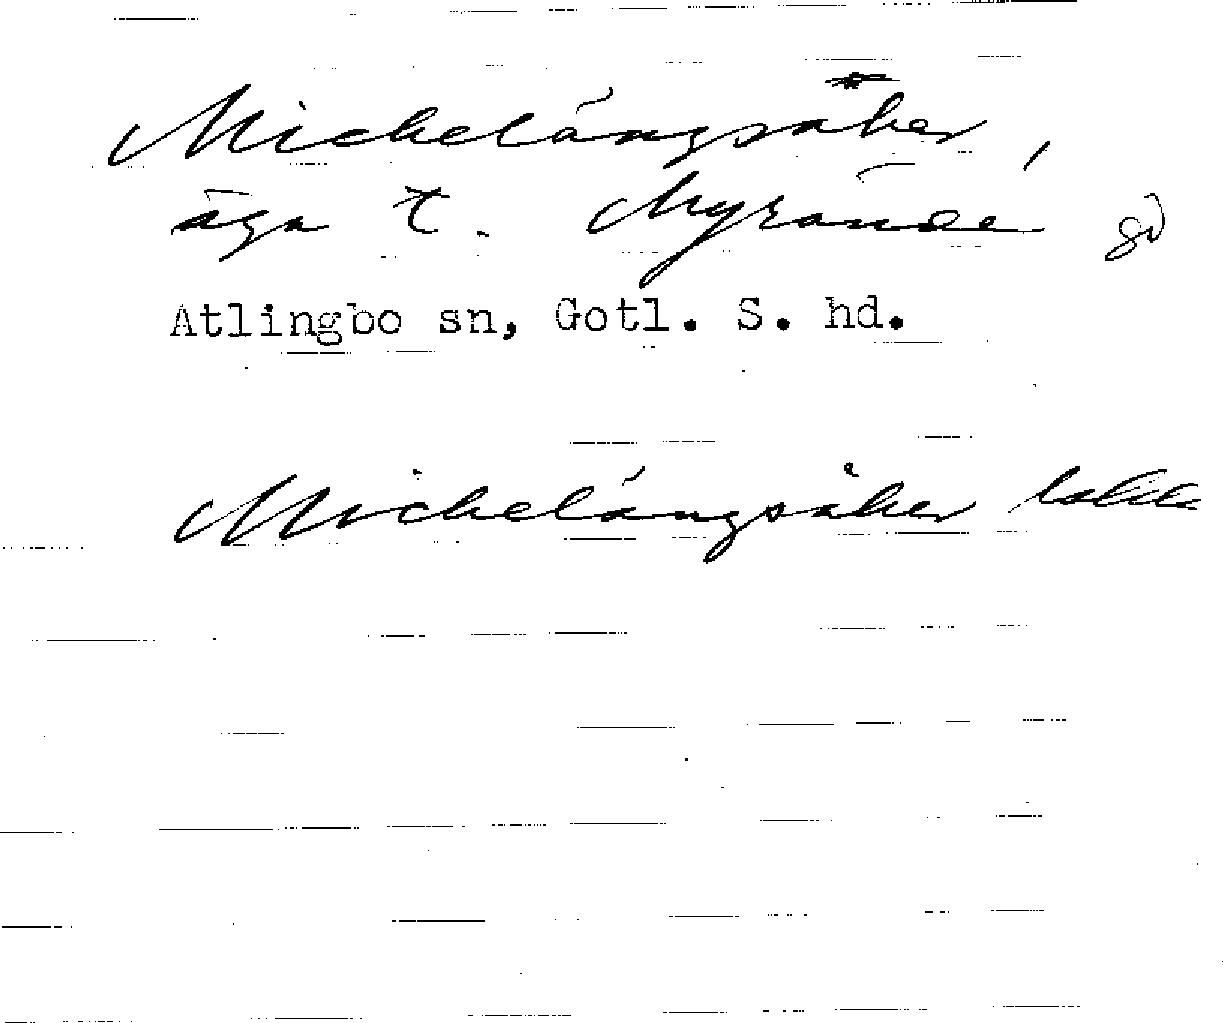 Michelängsåker,
äga t. Myrände gd
Atlingbo sn, Gotl. S. hd.
Michelängsåker